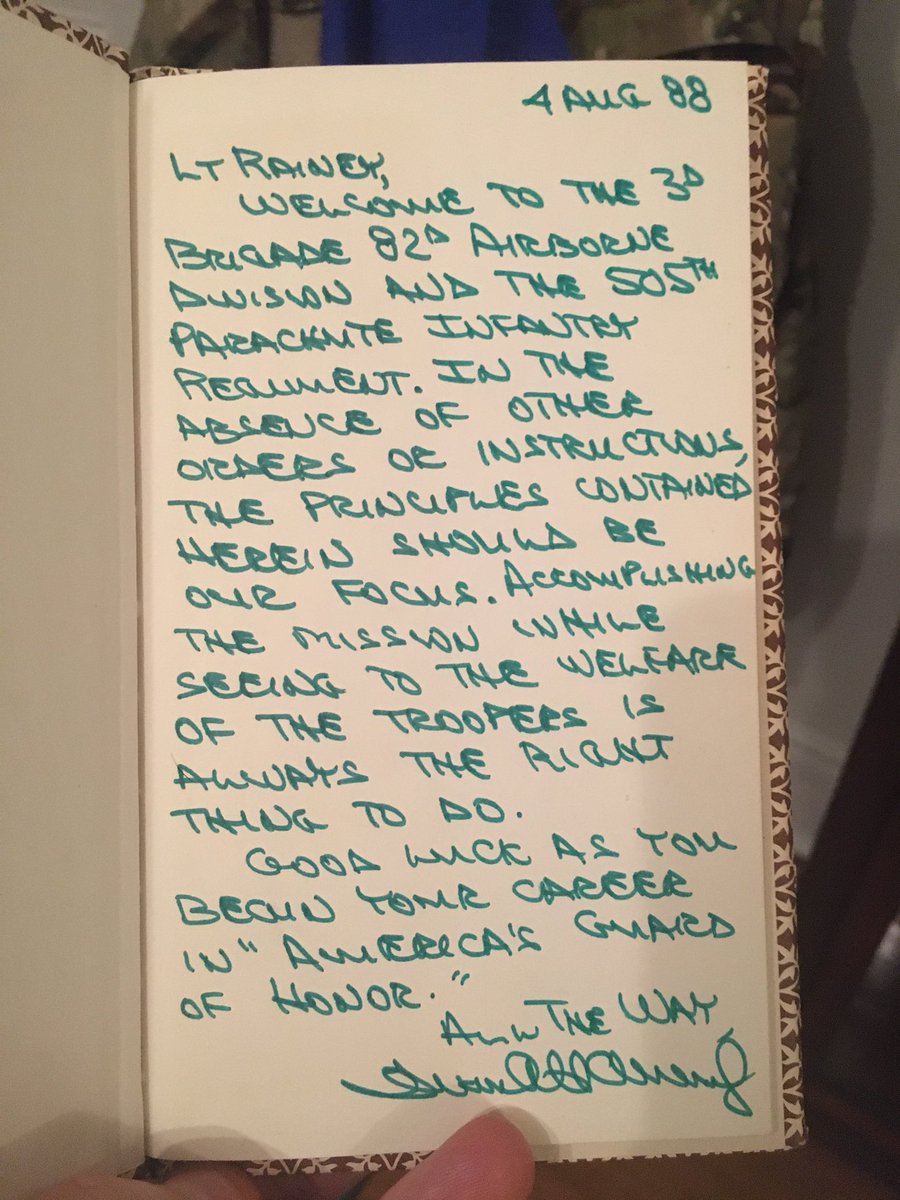 4 AUG 88
LT RAINEY,
WELCOME TO THE 3D
BRIGADE 82D AIRBORNE
DIVISION AND THE 505TH
PARACHUTE INFANTRY
REGIMENT. IN THE
ABSENCE OF OTHER
ORDERS OR INSTRUCTIONS,
THE PRINCIPLES CONTAINED
HEREIN SHOULD BE
OUR FOCUS. ACCOMPLISHING
THE MISSION WHILE
SEEING TO THE WELFARE
OF THE TROOPERS IS
ALWAYS THE RIGHT
THING TO DO.
GOOD LUCK AS YOU
BEGIN YOUR CAREER
IN "AMERICA'S GUARD
OF HONOR."
ALL THE WAY